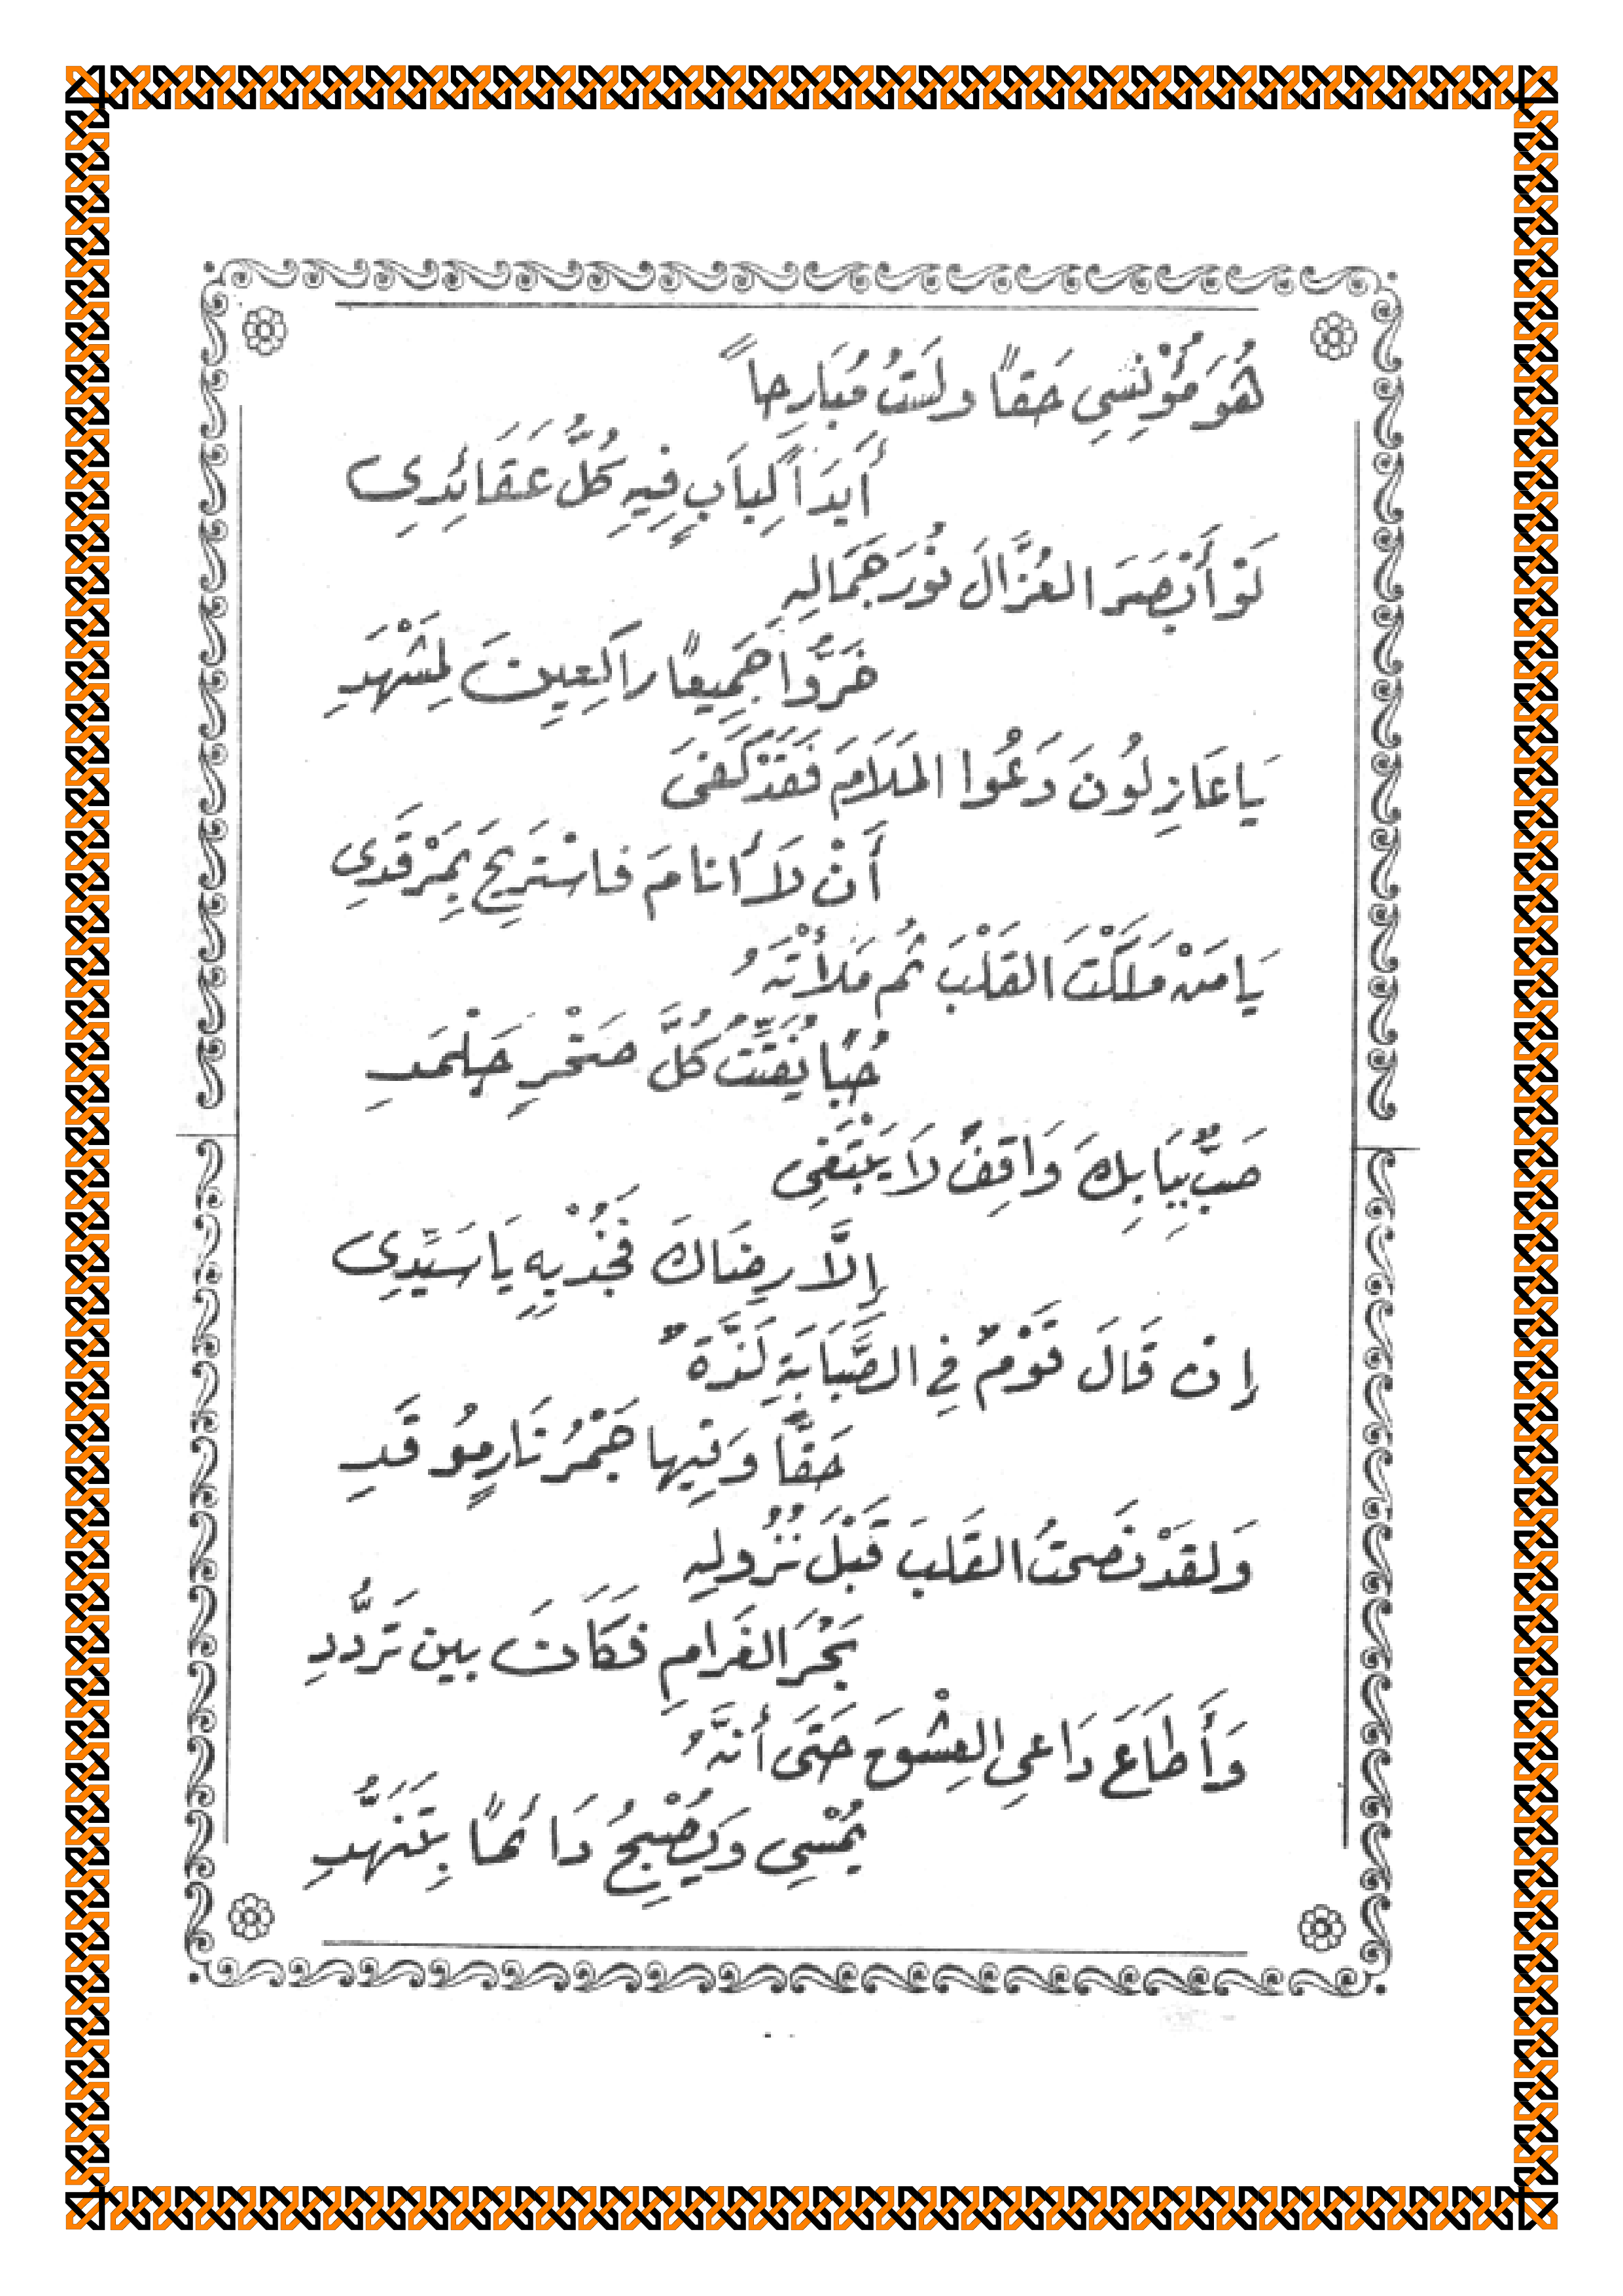 هُوَ مُؤْنِسِي حَقًا ولَستُ مُبَارِحاً
أَبَدَاً لِبَابٍ فِيهِ كُلُّ عَقَائدِى
لَوْ أَبْصَرَ العُزَّالَ نُورَ جَمَالِهِ
خَرُّوا جَمِيعًا راكِعِينَ لِمَشْهَدِ
يَا عَازِلُونَ دَعُوا المَلَامَ فَقَدْ كَفَى
أَنْ لَا أنامَ فاسْتَرِيحَ بِمَرْقَدِى
يَا مَنْ مَلَكْتَ القَلْبَ ثُم مَلَأْتَهُ
حُبًا يُفَتِّتُ كُلَّ صَخْرٍ جَلْمَدِ
صَبٌّ بِبَابِكَ وَاقِفٌ لَا يَبْتَغِى
إلَّا رِضَاكَ فَخُذْ بِهِ يَا سَيِّدِى
إن قَالَ قَوْمٌ فِي الصَّبَابَةِ لَذَّةٌ
حَقًّا وَفِيها جَمْرُ نَارٍ مُوقَدِ
وَلقَدْ نَصَحتُ القَلبَ قَبْلَ نُزُولِهِ
بَحْرَ الغَرَامِ فكَانَ بين تَرَدُّدِ
وَأَطَاعَ دَاعِي العِشْوقَ حَتَى أنَّهُ
يُمْسِي وَيُصْبِحُ دَائمًا بِتَنَهُّدِ